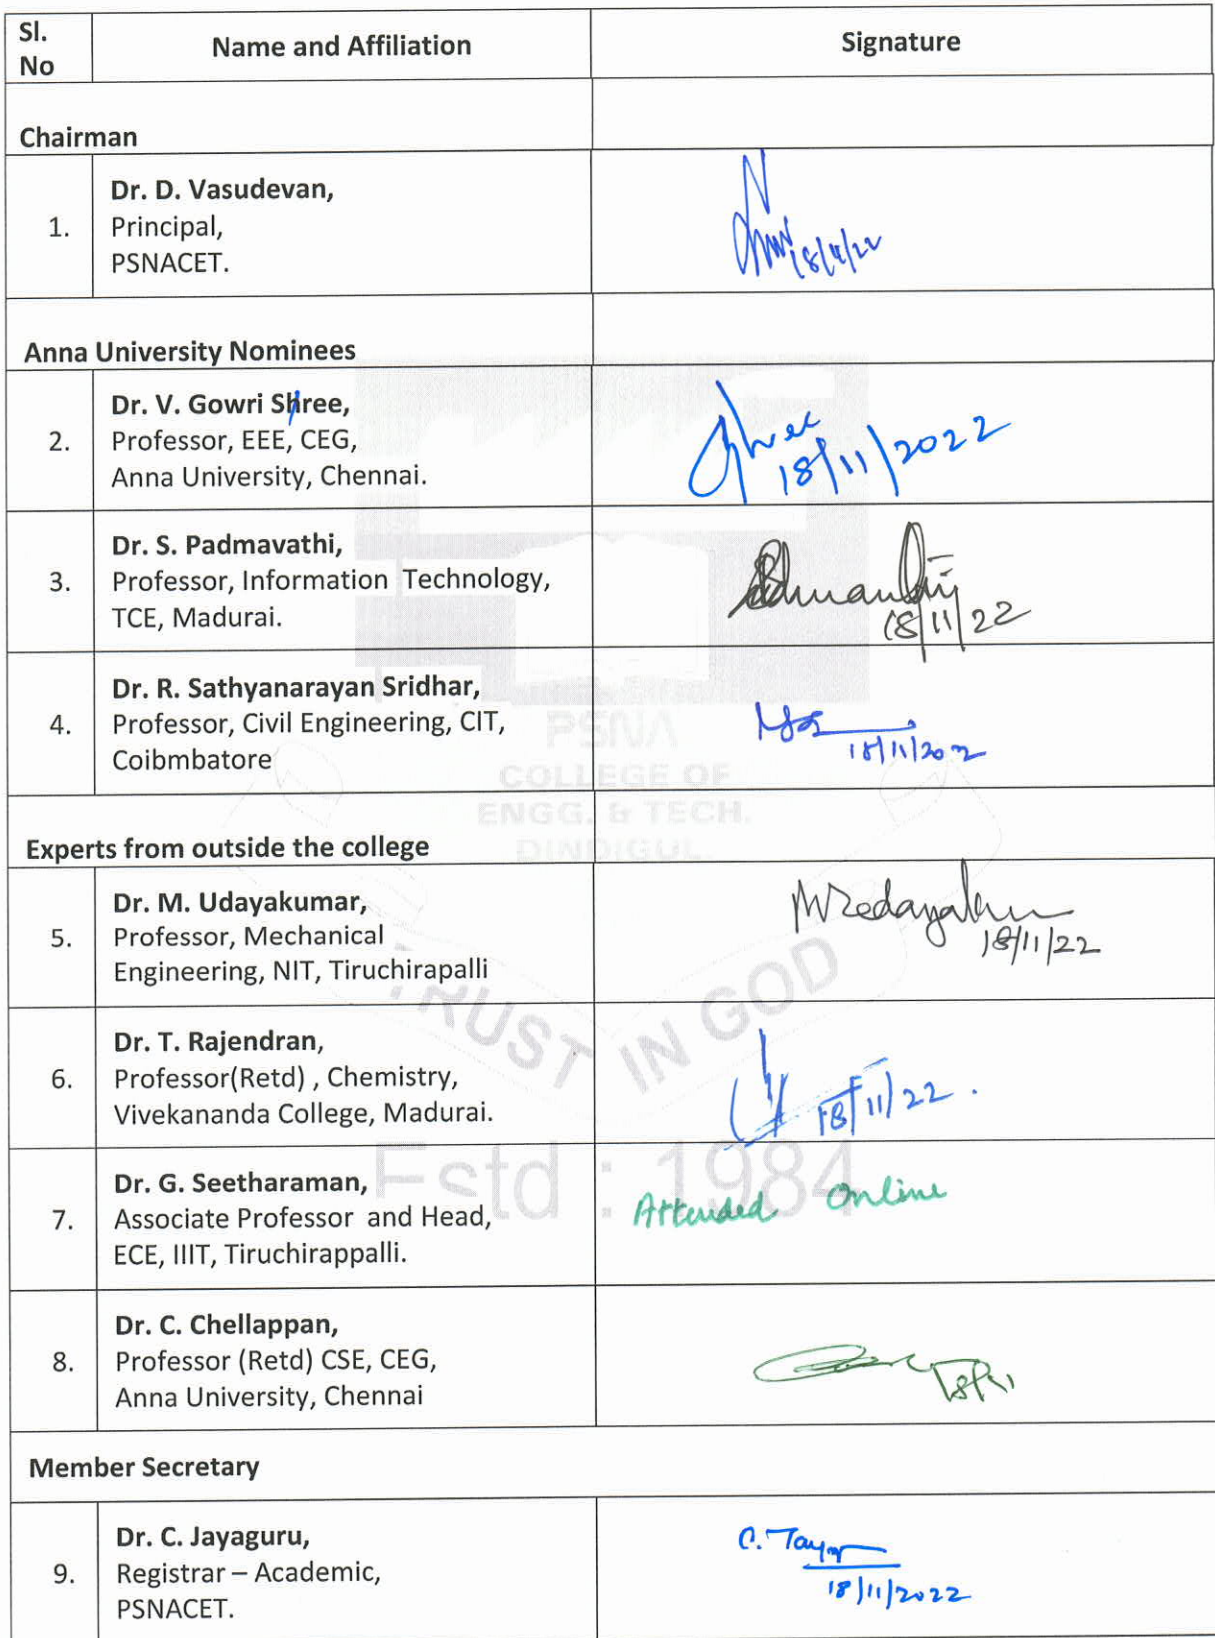 Sl.
No
Name and Affiliation
Signature
Chairman
1.
Dr. D. Vasudevan,
Principal,
PSNACET.
18/11/22
Anna University Nominees
2.
Dr. V. Gowri Shree,
Professor, EEE, CEG,
Anna University, Chennai.
Shree
18/11/2022
3.
Dr. S. Padmavathi,
Professor, Information Technology,
TCE, Madurai.
18/11/22
4.
Dr. R. Sathyanarayan Sridhar,
Professor, Civil Engineering, CIT,
Coibmbatore
18/11/2022
PSNA
COLLEGE OF
ENGG. & TECH.
DINDIGUL.
Experts from outside the college
5.
Dr. M. Udayakumar,
Professor, Mechanical
Engineering, NIT, Tiruchirapalli
18/11/22
TRUST IN GOD
6.
Dr. T. Rajendran,
Professor(Retd) , Chemistry,
Vivekananda College, Madurai.
18/11/22.
Estd : 1984
7.
Dr. G. Seetharaman,
Associate Professor and Head,
ECE, IIIT, Tiruchirappalli.
Attended Online
8.
Dr. C. Chellappan,
Professor (Retd) CSE, CEG,
Anna University, Chennai
18/11
Member Secretary
9.
Dr. C. Jayaguru,
Registrar – Academic,
PSNACET.
18/11/2022